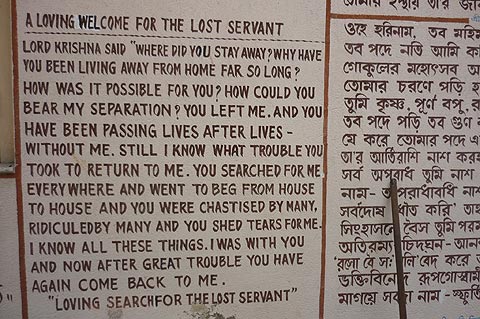 A LOVING WELCOME FOR THE LOST SERVANT
LORD KRISHNA SAID "WHERE DID YOU STAY AWAY? WHY HAVE
YOU BEEN LIVING AWAY FROM HOME FAR SO LONG?
HOW WAS IT POSSIBLE FOR YOU? HOW COULD YOU
BEAR MY SEPARATION? YOU LEFT ME. AND YOU
HAVE BEEN PASSING LIVES AFTER LIVES -
WITHOUT ME. STILL I KNOW WHAT TROUBLE YOU
TOOK TO RETURN TO ME. YOU SEARCHED FOR ME
EVERYWHERE AND WENT TO BEG FROM HOUSE
TO HOUSE AND YOU WERE CHASTISED BY MANY,
RIDICULEDBY MANY AND YOU SHED TEARS FOR ME.
I KNOW ALL THESE THINGS. I WAS WITH YOU
AND NOW AFTER GREAT TROUBLE YOU HAVE
AGAIN COME BACK TO ME.
"LOVING SEARCHFOR THE LOST SERVANT"
ওহে হরিনাম, তব মহিম
তব পদে নতি আমি ক
গোকুলের মহোৎসব আ
তোমার চরণে পড়ি হ
তুমি কৃষ্ণ, পূর্ণ বপু, র
তব পদে পড়ি তব গুণ
যে করে তোমার পদে এ
তা'র আর্তিরাশি নাশ কর
সর্ব অপরাধ তুমি নাশ
নাম- অপরাধাবধি নাশ
সর্বদোষ ধৌত করি' তা
সিংহাসনে বৈস তুমি পর
অতিরম্য চিদ্ঘন- আন
ভক্তিবিনোদ রূপগোস্বামী
মাগয়ে সর্বদা নাম -স্ফূর্তি